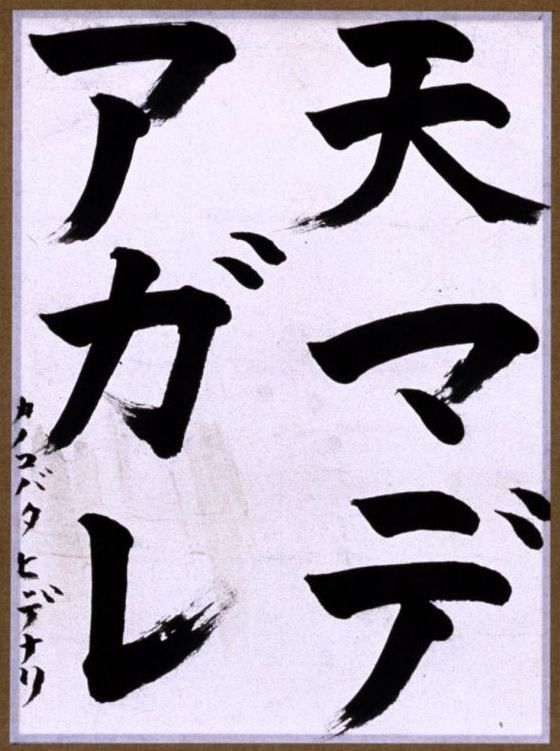 天マデ
アガレ
カノコバタヒデナリ